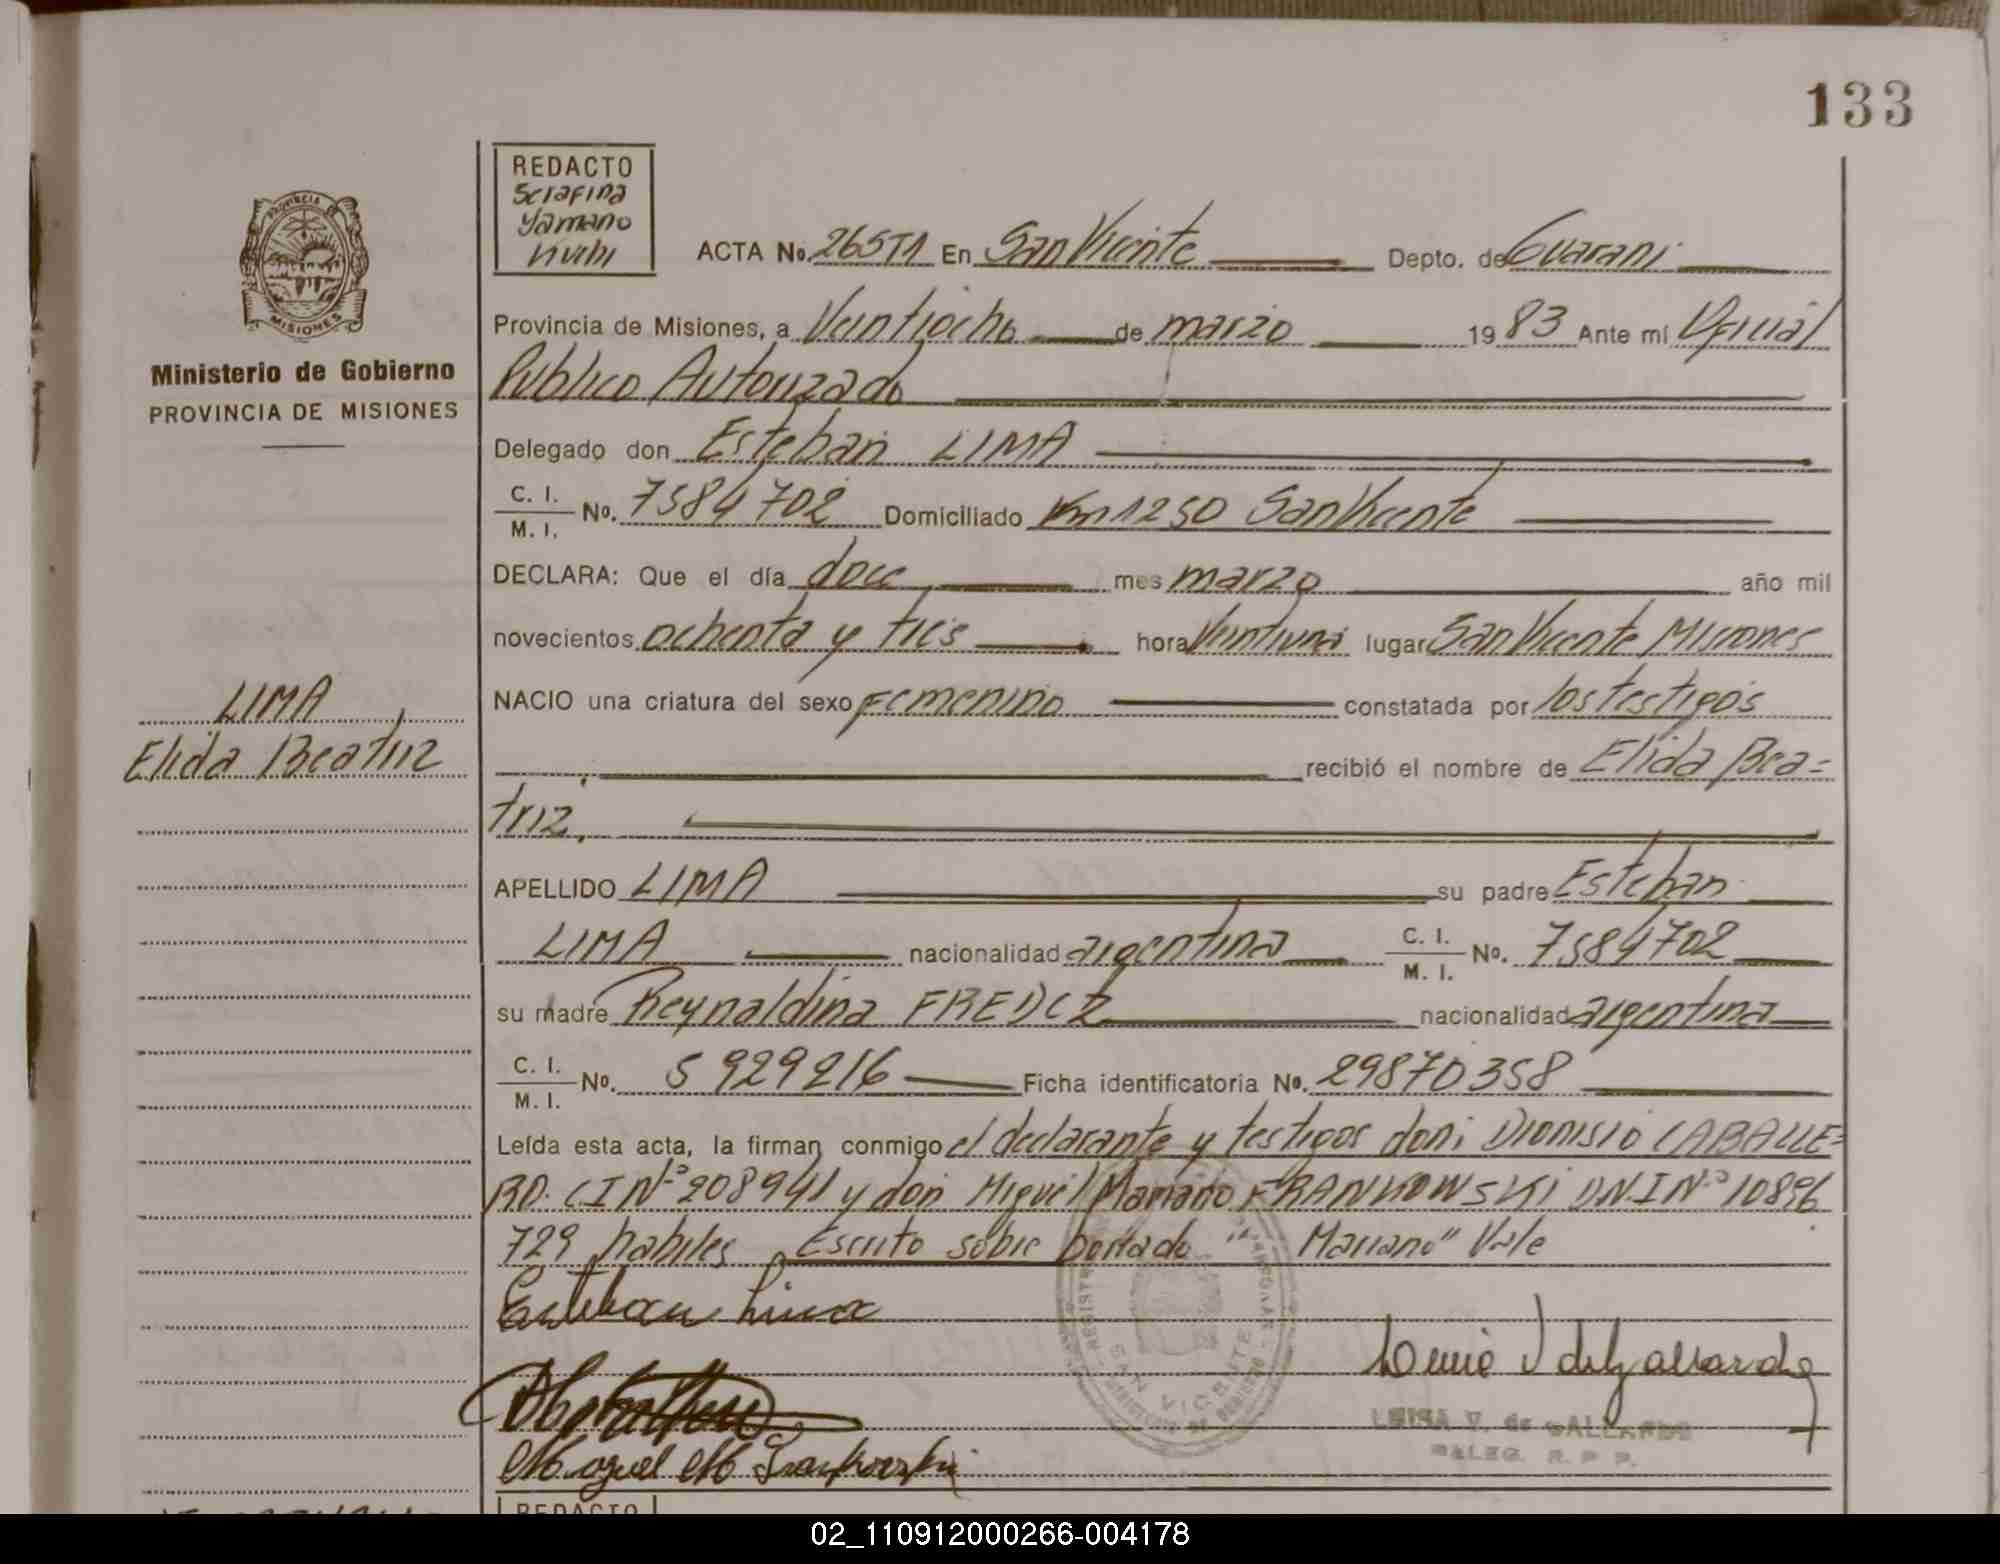 133
REDACTO
Serafina
Yamano
Vivihi
ACTA No. 265T1 En San Vicente Depto. de Guarani
PROVINCIA
MISIONES
Ministerio de Gobierno
PROVINCIA DE MISIONES
Provincia de Misiones, a Veintiocho de marzo 1983 Ante mí Oficial
Publico Autorizado
Delegado don Esteban LIMA
C. I.
M. I. No. 7584702 Domiciliado Km 1250 San Vicente
DECLARA: Que el día doce mes marzo año mil
novecientos ochenta y tres hora Veintiuna lugar San Vicente Misiones
LIMA
Elida Beatriz
NACIO una criatura del sexo Femenino constatada por los testigos
recibió el nombre de Elida Bea=
triz.
APELLIDO LIMA su padre Esteban
LIMA nacionalidad argentina C. I.
M. I. No. 7584702
su madre Reynaldina nacionalidad argentina
C. I.
M. I. No. 5929216 Ficha identificatoria No. 29870358
Leída esta acta, la firman conmigo el declarante y testigos don: Dionisio CABALLE=
RO. CI Nº 208941 y don Miguel Mariano FRANKOWSKI DNI Nº 10896
729 habiles Escrito sobre borrado "Mariano" Vale
Esteban Lima
SAN VICENTE
Miguel M Frankowski
LUISA V. de GALLARDO
DALEG. R. P P.
REDACTO
02_110912000266-004178